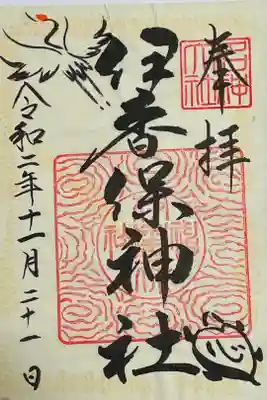 奉拝
伊香保神社
令和二年十一月二十一日